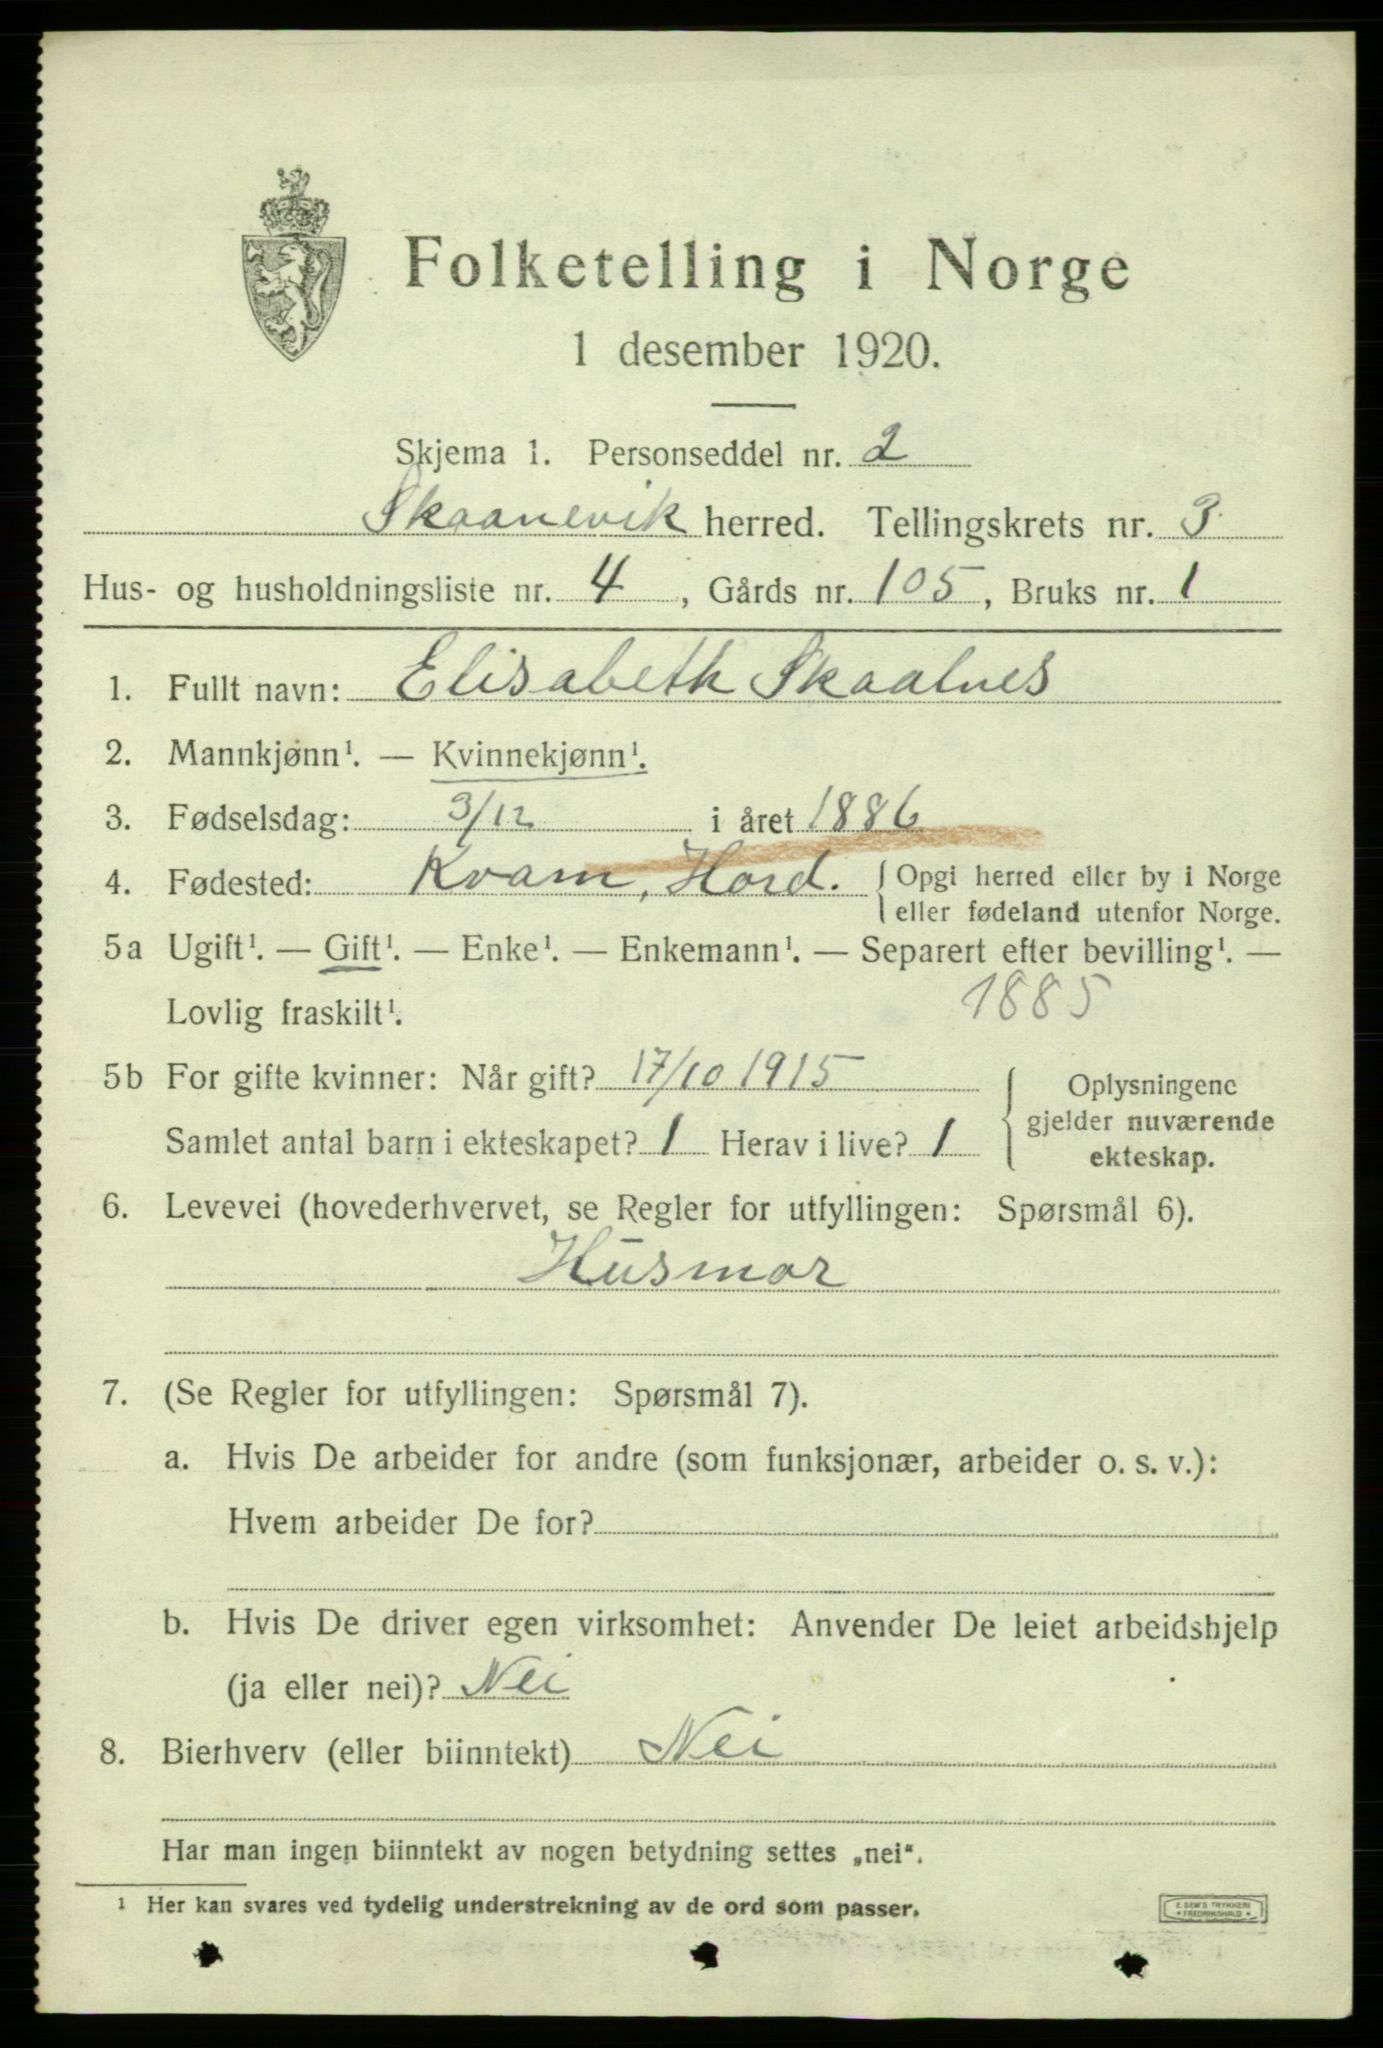 Folketelling i Norge
1 desember 1920.
Skjema 1. Personseddel nr. 2
Skaanevik herred. Tellingskrets nr. 3
Hus- og husholdningsliste nr. 4, Gårds nr. 105, Bruks nr. 1
1. Fullt navn: Elisabeth Skaalnes
2. Mannkjønn¹. — Kvinnekjønn¹.
3. Fødselsdag: 3/12 i året 1886
4. Fødested: Kvam, Hord. { Opgi herred eller by i Norge
eller fødeland utenfor Norge.
5a Ugift¹. — Gift¹. — Enke¹. — Enkemann¹. — Separert efter bevilling¹. —
Lovlig fraskilt¹. 1885
5b For gifte kvinner: Når gift? 17/10 1915
Samlet antal barn i ekteskapet? 1 Herav i live? 1
{ Oplysningene
gjelder nuværende
ekteskap.
6. Levevei (hovederhvervet, se Regler for utfyllingen: Spørsmål 6).
Husmor
7. (Se Regler for utfyllingen: Spørsmål 7).
a. Hvis De arbeider for andre (som funksjonær, arbeider o. s. v.):
Hvem arbeider De for?
b. Hvis De driver egen virksomhet: Anvender De leiet arbeidshjelp
(ja eller nei)? Nei
8. Bierhverv (eller biinntekt) Nei
Har man ingen biinntekt av nogen betydning settes „nei“.
¹ Her kan svares ved tydelig understrekning av de ord som passer.
E. SEM'S TRYKKERI
FREDRIKSHALD